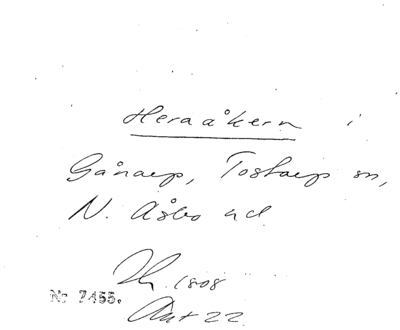 Heraåkern i
Gånarp, Tostarp sn,
N. Åsbo hd
1808
Nr 7455.
Akt 22